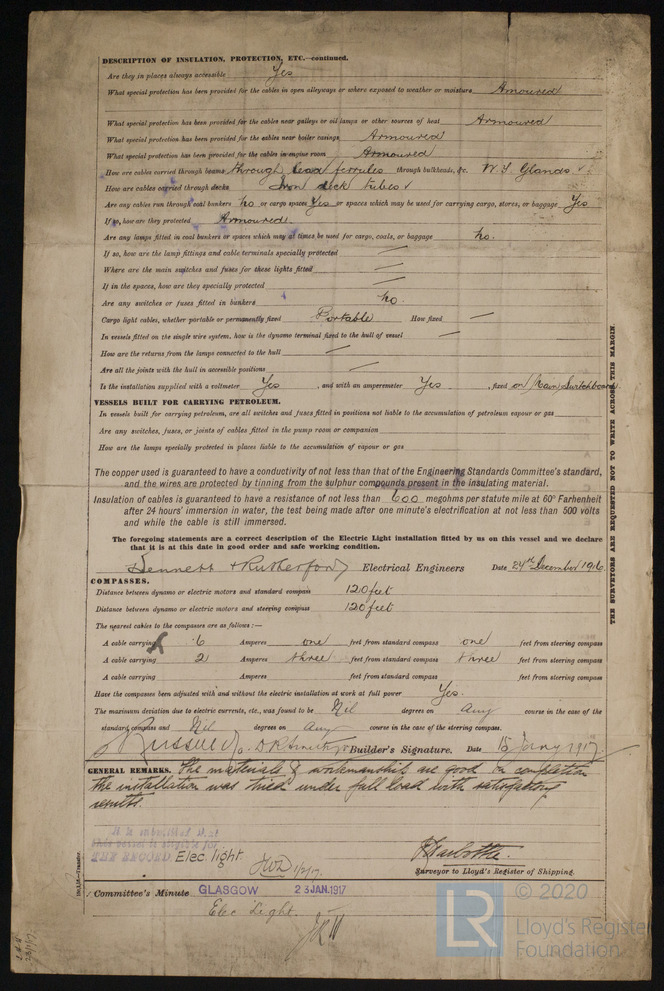 DESCRIPTION OF INSULATION, PROTECTION, ETC.—continued.
Are they in places always accessible Yes
What special protection has been provided for the cables in open alleyways or where exposed to weather or moisture Armoured
What special protection has been provided for the cables near galleys or oil lamps or other sources of heat Armoured
What special protection has been provided for the cables near boiler casings Armoured
What special protection has been provided for the cables in engine room Armoured
How are cables carried through beams through lead ferrules through bulkheads, &c. W.T. Glands
How are cables carried through decks Iron deck tubes
Are any cables run through coal bunkers no or cargo spaces Yes or spaces which may be used for carrying cargo, stores, or baggage Yes
If so, how are they protected Armoured
Are any lamps fitted in coal bunkers or spaces which may at times be used for cargo, coals, or baggage no.
If so, how are the lamp fittings and cable terminals specially protected
Where are the main switches and fuses for these lights fitted
If in the spaces, how are they specially protected
Are any switches or fuses fitted in bunkers no.
Cargo light cables, whether portable or permanently fixed Portable How fixed
In vessels fitted on the single wire system, how is the dynamo terminal fixed to the hull of vessel
How are the returns from the lamps connected to the hull
Are all the joints with the hull in accessible positions
Is the installation supplied with a voltmeter Yes , and with an amperemeter Yes , fixed on Main Switchboard
VESSELS BUILT FOR CARRYING PETROLEUM.
In vessels built for carrying petroleum, are all switches and fuses fitted in positions not liable to the accumulation of petroleum vapour or gas
Are any switches, fuses, or joints of cables fitted in the pump room or companion
How are the lamps specially protected in places liable to the accumulation of vapour or gas
The copper used is guaranteed to have a conductivity of not less than that of the Engineering Standards Committee's standard,
and the wires are protected by tinning from the sulphur compounds present in the insulating material.
Insulation of cables is guaranteed to have a resistance of not less than 600 megohms per statute mile at 60° Farhenheit
after 24 hours' immersion in water, the test being made after one minute's electrification at not less than 500 volts
and while the cable is still immersed.
The foregoing statements are a correct description of the Electric Light installation fitted by us on this vessel and we declare
that it is at this date in good order and safe working condition.
& Rutherford Electrical Engineers Date 27th December 1916
COMPASSES.
Distance between dynamo or electric motors and standard compass 120 feet
Distance between dynamo or electric motors and steering compass 120 feet
The nearest cables to the compasses are as follows:—
A cable carrying .6 Amperes one feet from standard compass one feet from steering compass
A cable carrying 2 Amperes three feet from standard compass three feet from steering compass
A cable carrying Amperes feet from standard compass feet from steering compass
Have the compasses been adjusted with and without the electric installation at work at full power Yes.
The maximum deviation due to electric currents, etc., was found to be Nil degrees on Any course in the case of the
standard compass and Nil degrees on Any course in the case of the steering compass.
Russell & Co. Builder's Signature. Date 15 Jany 1917
GENERAL REMARKS. The materials & workmanship are good on completion
the installation was tried under full load with satisfactory
results.
It is submitted that
this vessel is eligible for
THE RECORD. Elec. light.
1/2/17
Surveyor to Lloyd's Register of Shipping.
Committee's Minute GLASGOW 23 JAN. 1917
Elec Light.
THE SURVEYORS ARE REQUESTED NOT TO WRITE ACROSS THIS MARGIN.
LR
© 2020
Lloyd's Register
Foundation